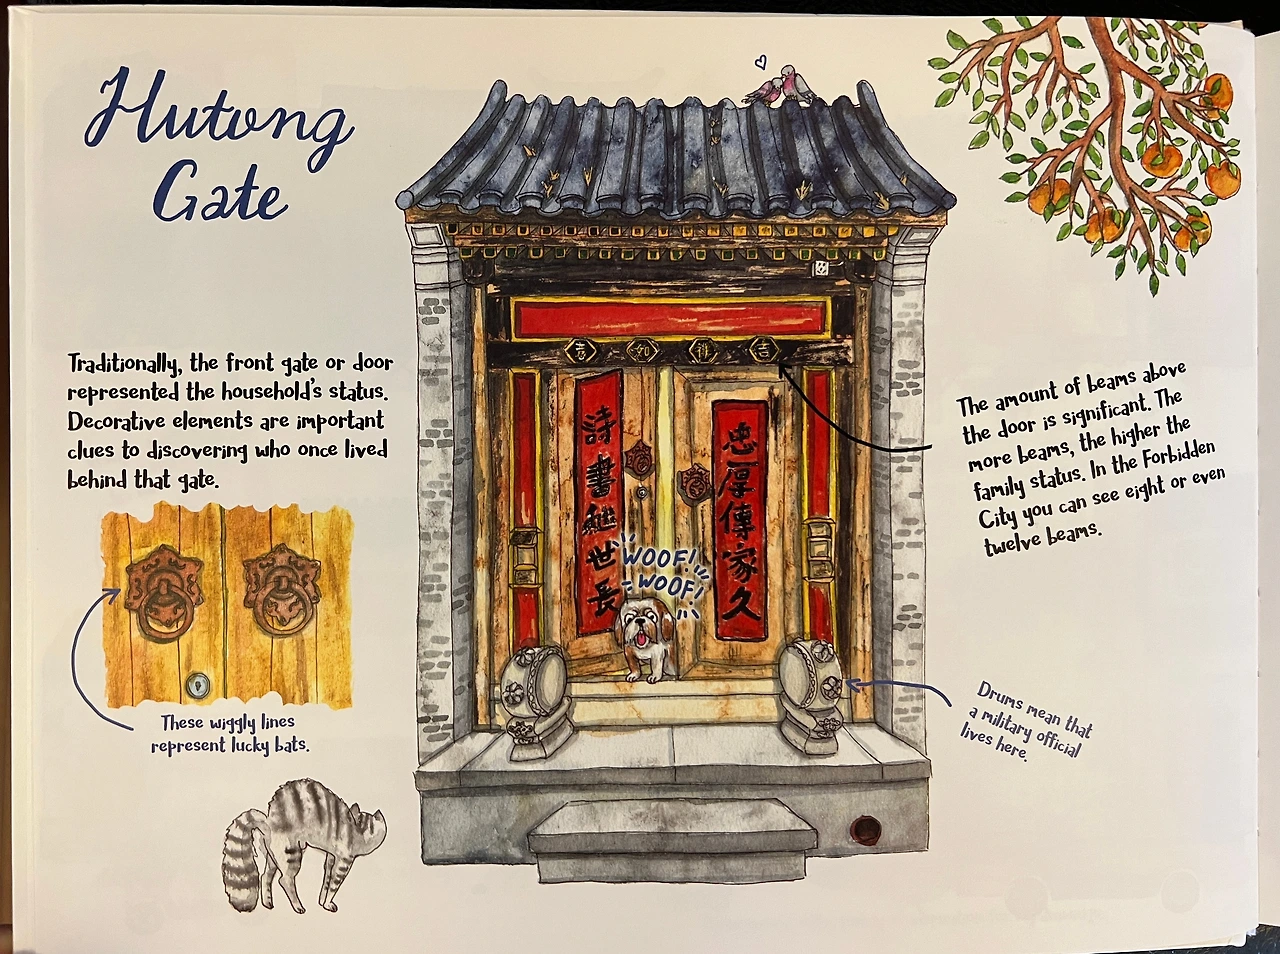 Hutong
Gate
Traditionally, the front gate or door
represented the household's status.
Decorative elements are important
clues to discovering who once lived
behind that gate.
These wiggly lines
represent lucky bats.
吉祥如意
忠厚傳家久
詩書繼世長
WOOF!
WOOF!
The amount of beams above
the door is significant. The
more beams, the higher the
family status. In the Forbidden
City you can see eight or even
twelve beams.
Drums mean that
a military official
lives here.